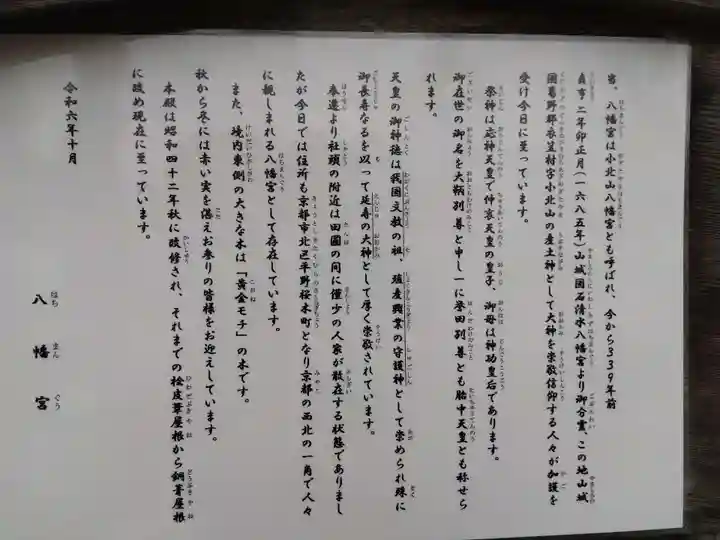 宮。八幡宮は小北山八幡宮とも呼ばれ、今から339年前
貞亨二年卯正月(一六八五年)山城国石清水八幡宮より御分霊、この地山城
国葛野郡衣笠村字小北山の産土神として大神を崇敬信仰する人々が加護を
受け今日に至っています。
祭神は応神天皇で仲哀天皇の皇子、御母は神功皇后であります。
御在世の御名を大鞆別尊と申し一に誉田別尊とも胎中天皇とも称せら
れます。
天皇の御神徳は我国文教の祖、殖産興業の守護神として崇められ殊に
御長寿なるを以って延寿の大神として厚く崇敬されています。
奉遷より社頭の附近は田圃の間に僅少の人家が散在する状態でありまし
たが今日では住所も京都市北区平野桜木町となり京都の西北の一角で人々
に親しまれる八幡宮として存在しています。
また、境内東側の大きな木は「黄金モチ」の木です。
秋から冬には赤い実を湛えお参りの皆様をお迎えしています。
本殿は昭和四十二年秋に改修され、それまでの桧皮葺屋根から銅葺屋根
に改め現在に至っています。
令和六年十月
八幡宮